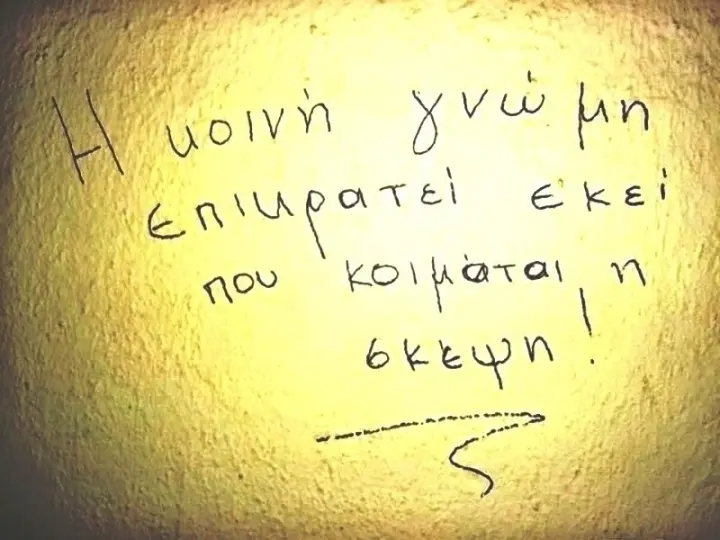 Η κοινή γνώμη
επικρατεί εκεί
που κοιμάται η
σκεψη!